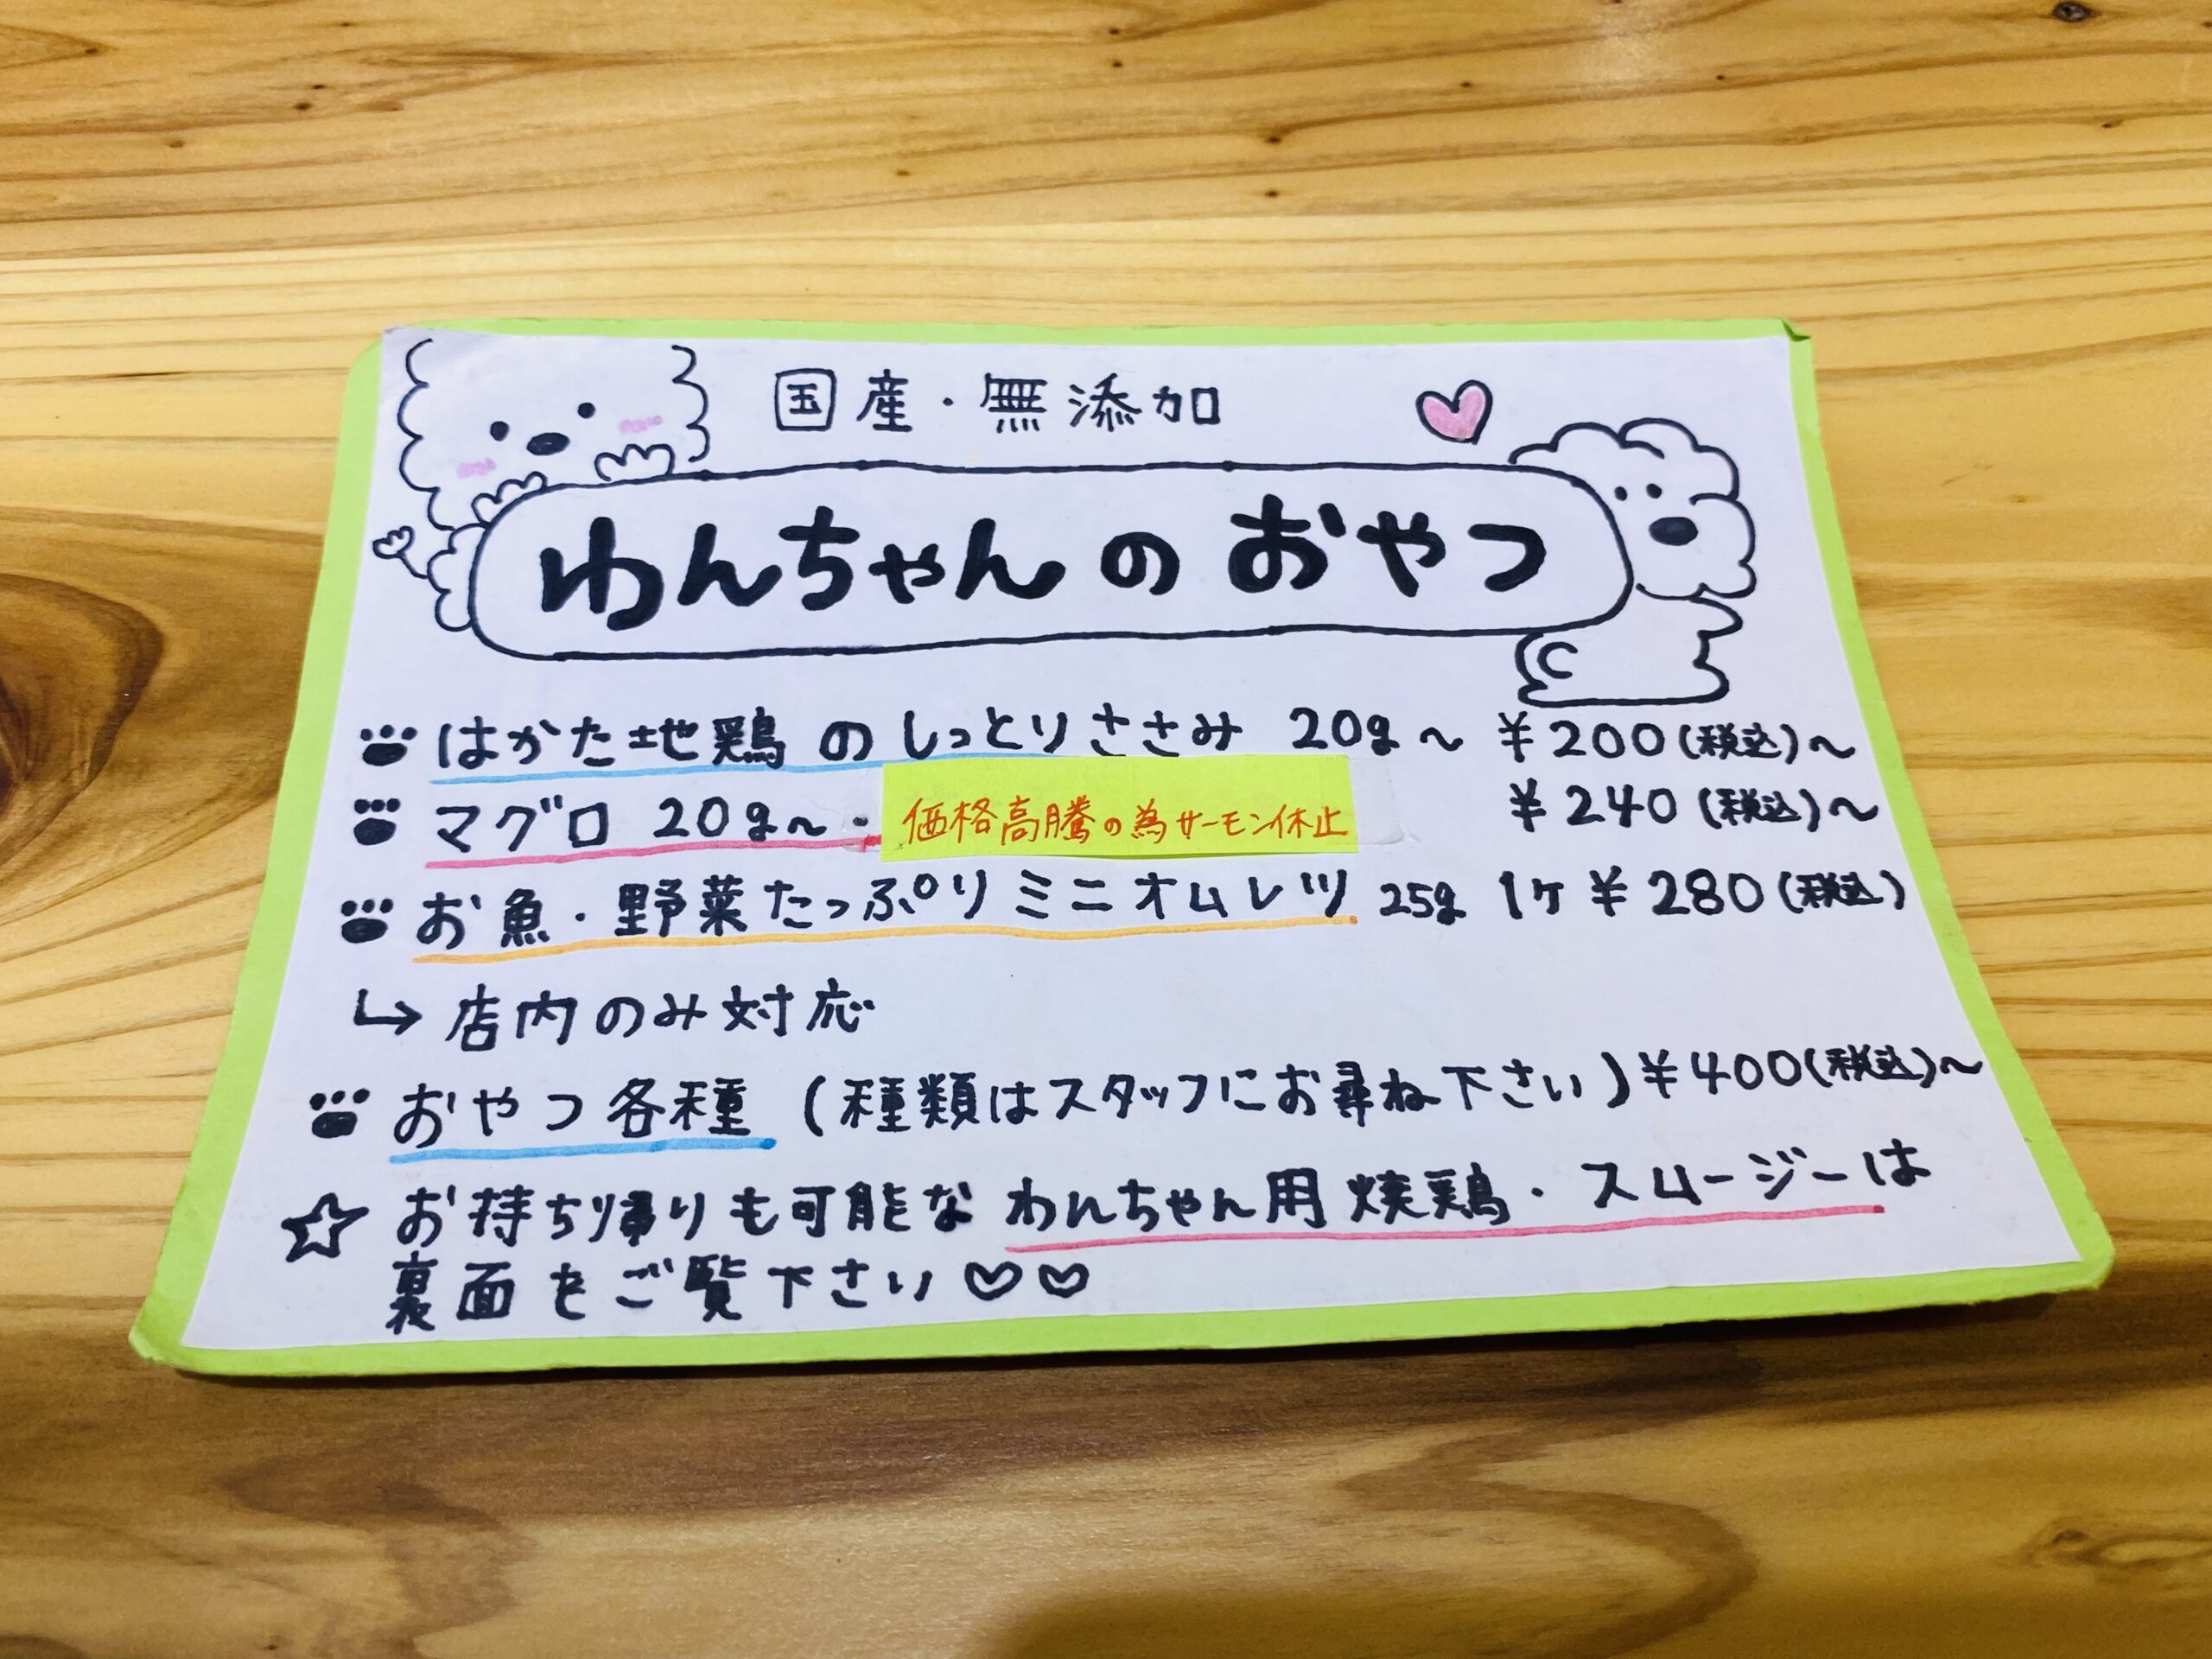 国産・無添加
わんちゃんのおやつ
はかた地鶏のしっとりささみ 20g～ ¥200(税込)～
マグロ 20g～・ 価格高騰の為サーモン休止 ¥240(税込)～
お魚・野菜たっぷりミニオムレツ 25g 1ヶ ¥280(税込)
↳店内のみ対応
おやつ各種 (種類はスタッフにお尋ね下さい) ¥400(税込)～
☆お持ち帰りも可能なわんちゃん用焼鶏・スムージーは
裏面をご覧下さい♡♡